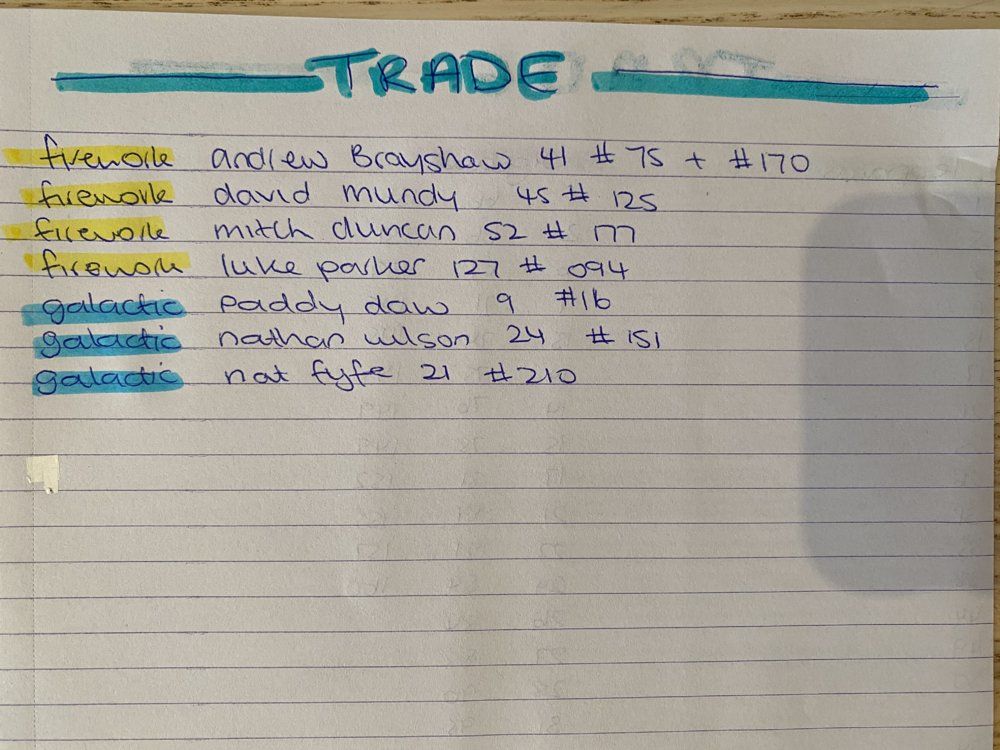 TRADE
firework andrew Brayshaw 41 # 75 + #170
firework david mundy 45 # 125
firework mitch duncan 52 # 177
firework luke parker 127 # 094
galactic paddy daw 9 #16
galactic nathan wilson 24 # 151
galactic nat fyfe 21 #210